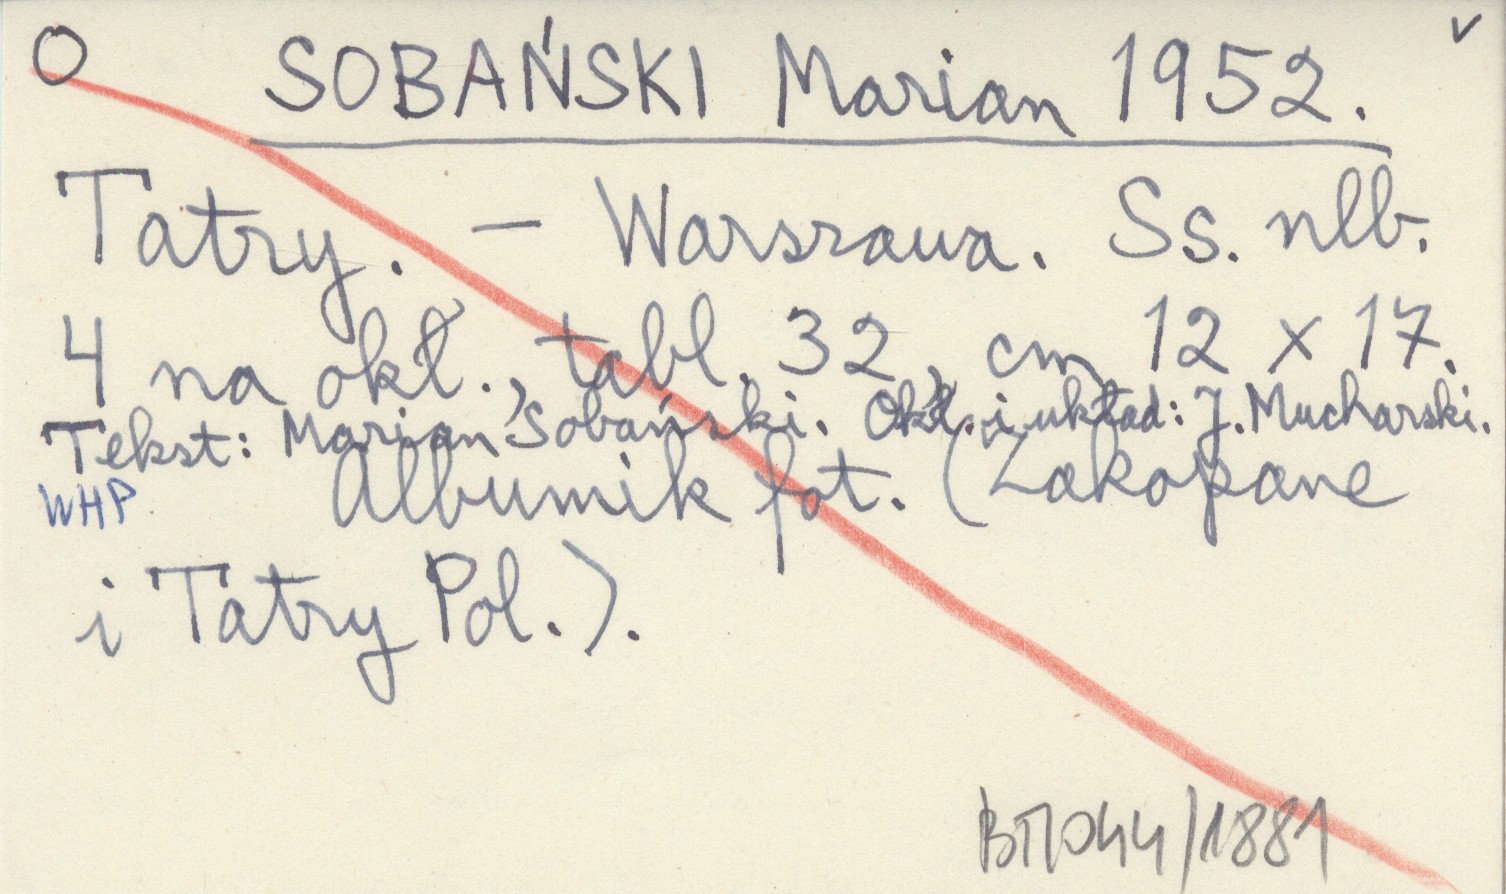 O SOBAŃSKI Marian 1952. v
Tatry. – Warszawa. Ss. nlb.
4 na okł., tabl. 32, cm 12 x 17.
Tekst: Marian Sobański. Okł. i układ: J. Mucharski.
WHP Albumik fot. (Zakopane
i Tatry Pol.).
/1881